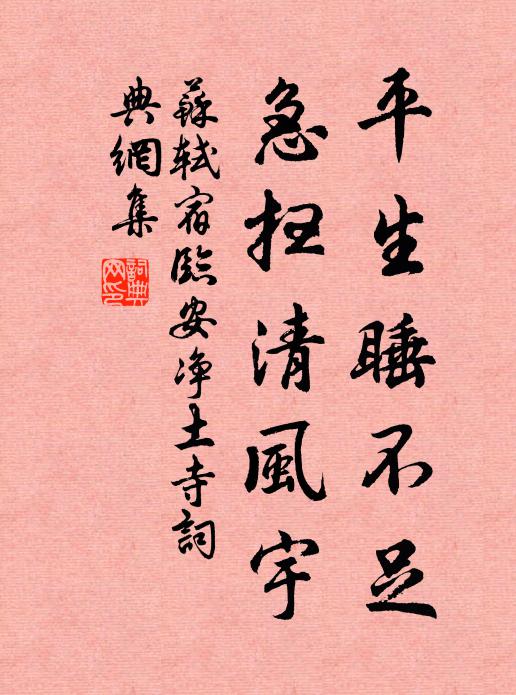 平生睡不足
急扫清風宇
蘇軾宿臨安净土寺詞
典網集
詞典网印